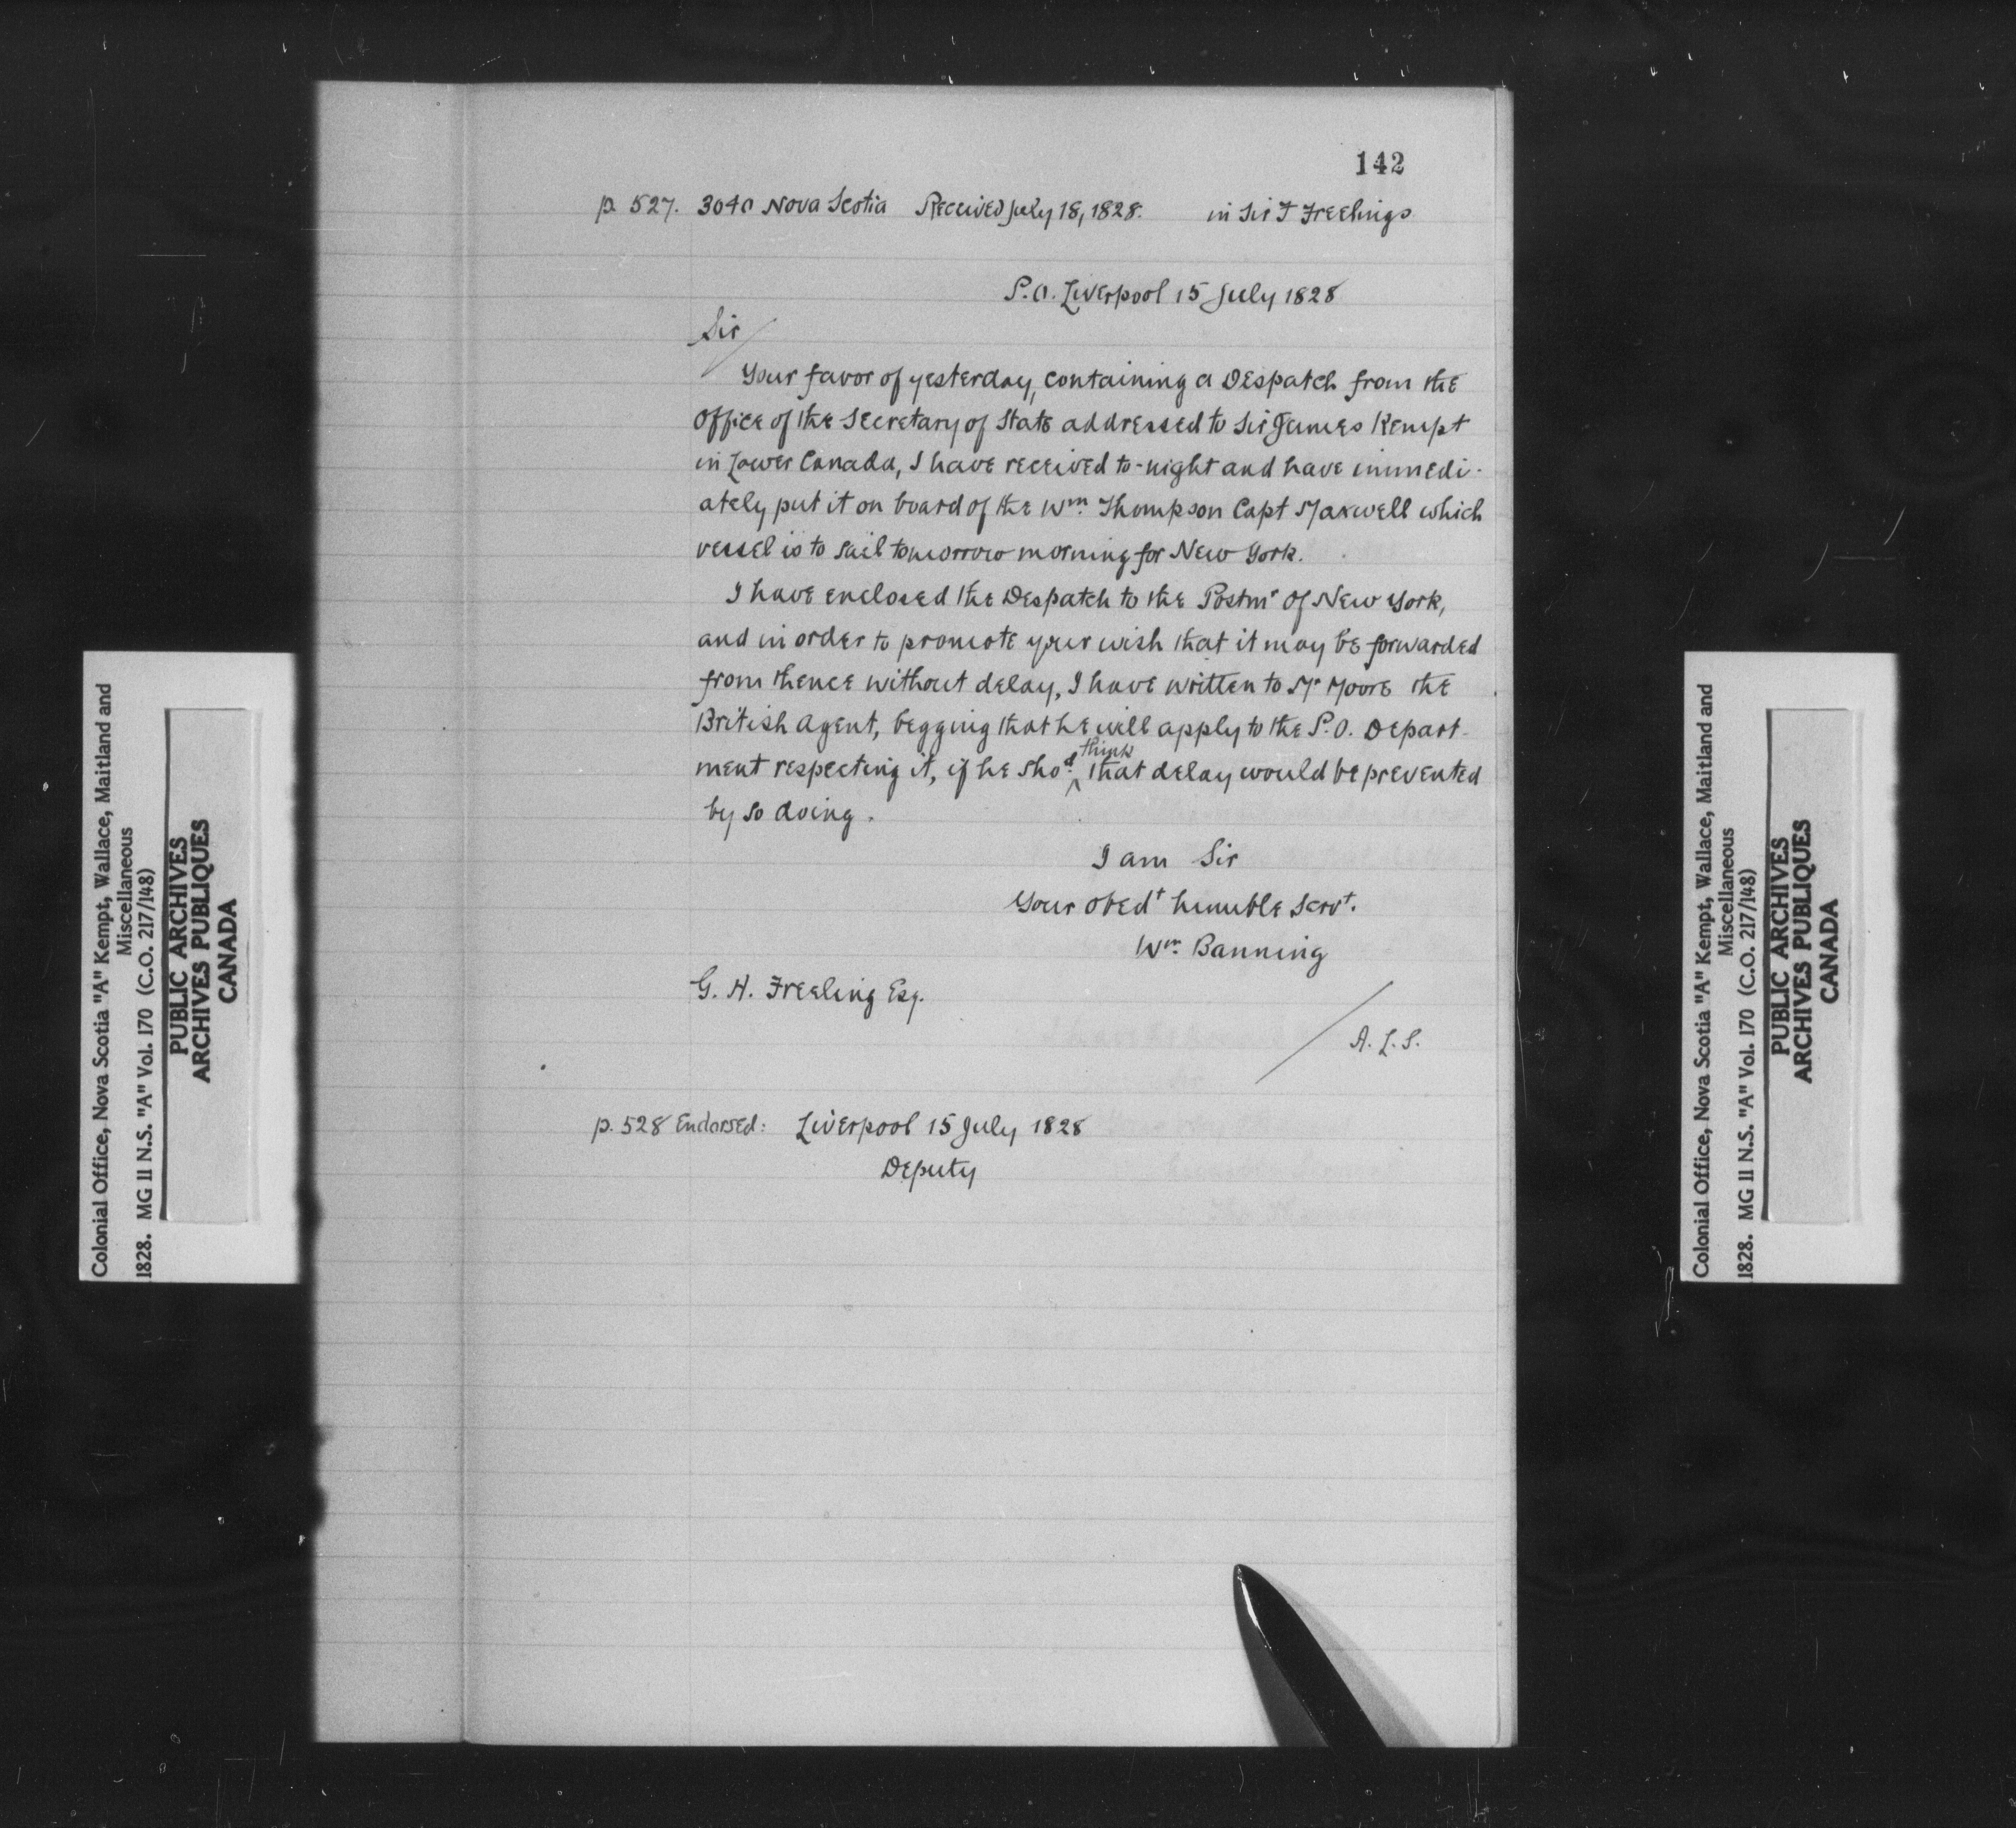 142
p. 527. 3040 Nova Scotia Received July 18, 1828. in Sir F Freelings
P.O. Liverpool 15 July 1828
Sir
Your favor of yesterday, containing a Despatch from the
Office of the Secretary of State addressed to Sir James Kempt
in Lower Canada, I have received to-night and have immedi-
ately put it on board of the Wm. Thompson Capt Maxwell which
vessel is to sail tomorrow morning for New York.
I have enclosed the Despatch to the Postmr of New York,
and in order to promote your wish that it may be forwarded
from thence without delay, I have written to Mr Moore the
British Agent, begging that he will apply to the P.O. Depart-
ment respecting it, if he shod. think that delay would be prevented
by so doing.
I am Sir
Your obedt humble servt.
Wm. Banning
G. H. Freeling Esq.
A.L.S.
p. 528 Endorsed: Liverpool 15 July 1828
Deputy
Colonial Office, Nova Scotia "A" Kempt, Wallace, Maitland and
Miscellaneous
1828. MG 11 N.S. "A" Vol. 170 (C.O. 217/148)
PUBLIC ARCHIVES
ARCHIVES PUBLIQUES
CANADA
Colonial Office, Nova Scotia "A" Kempt, Wallace, Maitland and
Miscellaneous
1828. MG 11 N.S. "A" Vol. 170 (C.O. 217/148)
PUBLIC ARCHIVES
ARCHIVES PUBLIQUES
CANADA